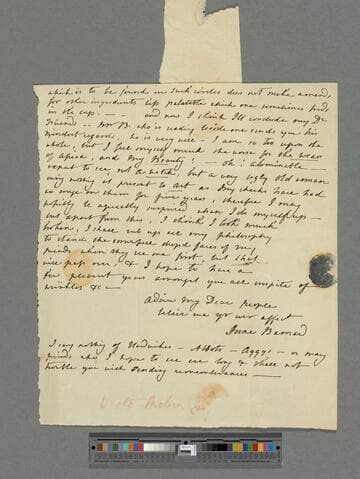 which is to be found in such circles does not make amends
for other ingredients less palatable which one sometimes finds
in the cup. — and now I think I'll conclude my Dr
friends — Mr B. who is reading beside me sends you his
kindest regards, he is very well — I am so too upon the
whole, but I feel myself much the worse for the wear
of Africa, and my Beauty! — oh! abominable —
expect to see, not a witch, but a very ugly old woman
owing nothing at present to art as my cheeks have had
no rouge on them for five years, therefore I may
possibly be agreeably surprised when I do myself up —
but apart from this, I think I look much
broken, I shall rub up all my philosophy
to stand the stupid faces of my
friends when they see me first, but that
will pass over, & I hope to have a
few pleasant years amongst you all inspite of
wrinkles &c —
Adieu my Dear people
believe me yr ever affect
Anne Barnard
I say nothing of — Abbots — Aggys — or any
friends who I hope to see ere long & shall not
trouble you with sending remembrances —